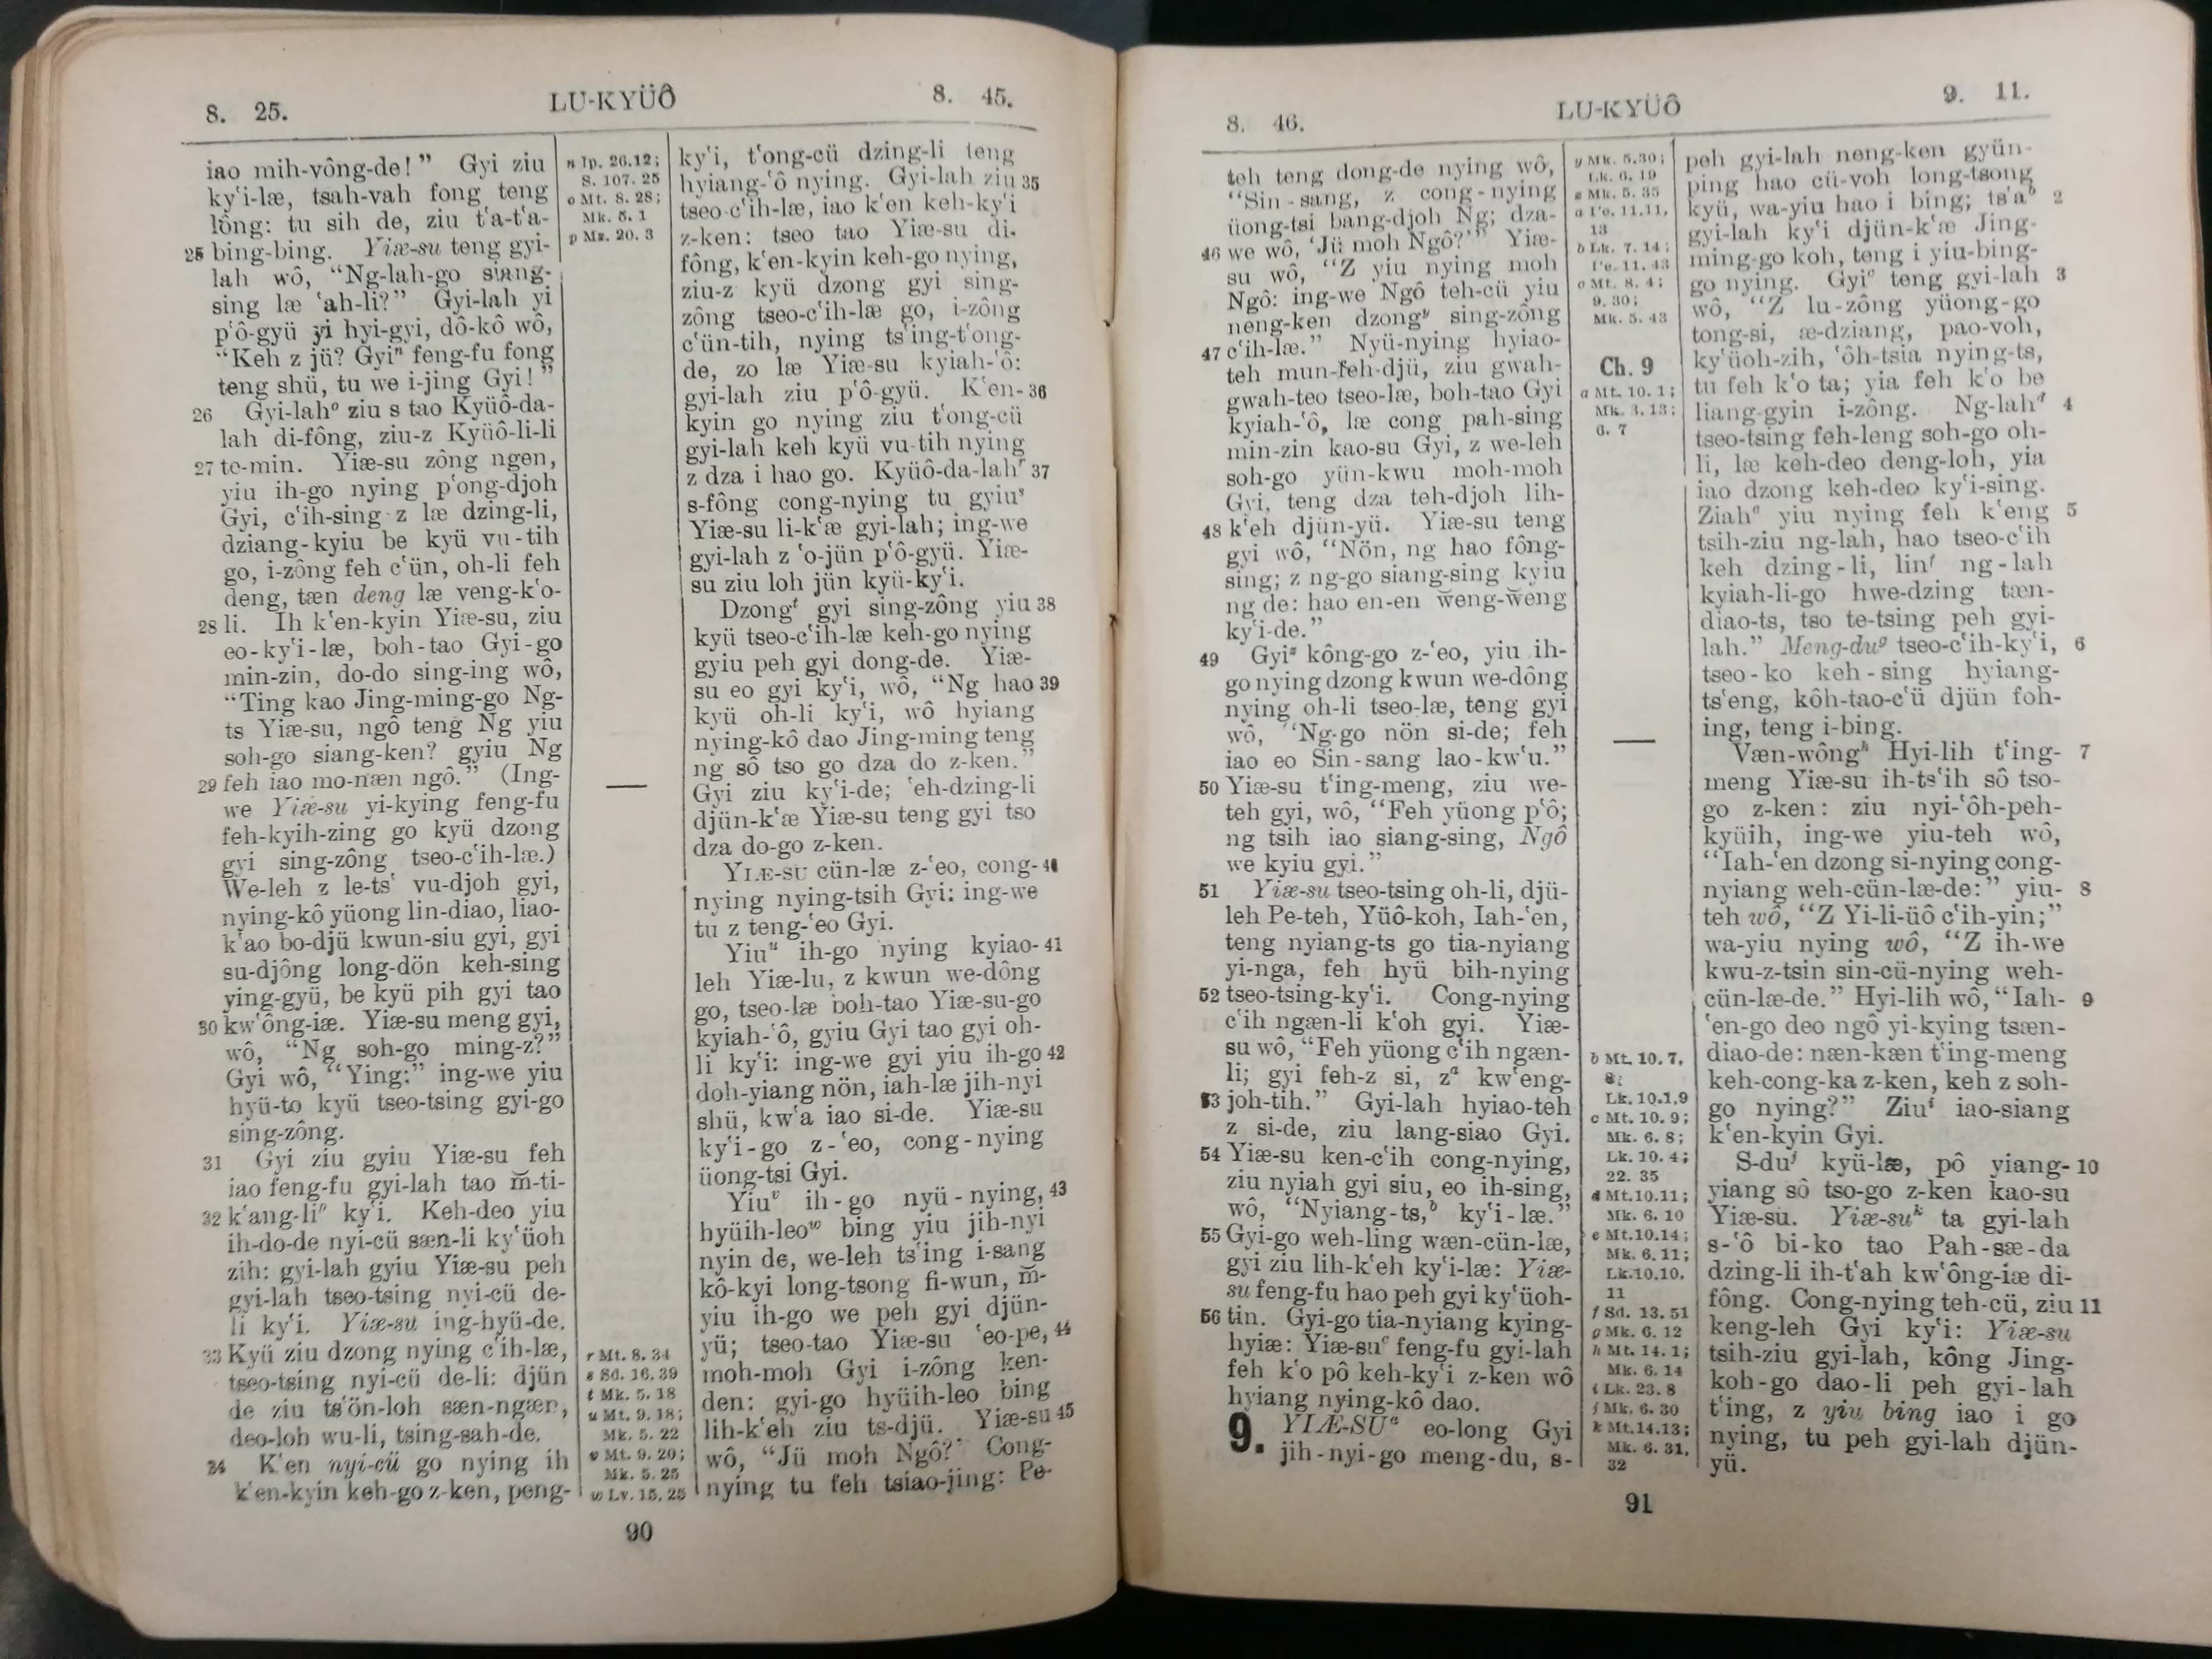 8. 25.
LU-KYÜÔ
8. 45.
iao mih-vông-de!” Gyi ziu
ky‘i-læ, tsah-vah fong teng
lông: tu sih de, ziu t‘a-t‘a-
25 bing-bing. Yiæ-su teng gyi-
lah wô, “Ng-lah-go siang-
sing læ ‘ah-li?” Gyi-lah yi
p‘ô-gyü yi hyi-gyi, dô-kô wô,
“Keh z jü? Gyiⁿ feng-fu fong
teng shü, tu we i-jing Gyi!”
26 Gyi-lahᵒ ziu s tao Kyüô-da-
lah di-fông, ziu-z Kyüô-li-li
27 te-min. Yiæ-su zông ngen,
yiu ih-go nying p‘ong-djoh
Gyi, c‘ih-sing z læ dzing-li,
dziang-kyiu be kyü vu-tih
go, i-zông feh c‘ün, oh-li feh
deng, tæn deng læ veng-k‘o-
28 li. Ih k‘en-kyin Yiæ-su, ziu
eo-ky‘i-læ, boh-tao Gyi-go
min-zin, do-do sing-ing wô,
“Ting kao Jing-ming-go Ng-
ts Yiæ-su, ngô teng Ng yiu
soh-go siang-ken? gyiu Ng
29 feh iao mo-næn ngô.” (Ing-
we Yiæ-su yi-kying feng-fu
feh-kyih-zing go kyü dzong
gyi sing-zông tseo-c‘ih-læ.)
We-leh z le-ts‘ vu-djoh gyi,
nying-kô yüong lin-diao, liao-
k‘ao bo-djü kwun-siu gyi, gyi
su-djông long-dön keh-sing
ying-gyü, be kyü pih gyi tao
30 kw‘ông-iæ. Yiæ-su meng gyi,
wô, “Ng soh-go ming-z?”
Gyi wô, “Ying:” ing-we yiu
hyü-to kyü tseo-tsing gyi-go
sing-zông.
31 Gyi ziu gyiu Yiæ-su feh
iao feng-fu gyi-lah tao m̆-ti-
32 k‘ang-liᵖ ky‘i. Keh-deo yiu
ih-do-de nyi-cü sæn-li ky‘üoh
zih: gyi-lah gyiu Yiæ-su peh
gyi-lah tseo-tsing nyi-cü de-
li ky‘i. Yiæ-su ing-hyü-de.
33 Kyü ziu dzong nying c‘ih-læ,
tseo-tsing nyi-cü de-li: djün
de ziu ts‘ön-loh sæn-ngæn,
deo-loh wu-li, tsing-sah-de.
34 K‘en nyi-cü go nying ih
k‘en-kyin keh-go z-ken, peng-
n Jp. 26.12;
S. 107. 25
o Mt. 8. 28;
Mk. 5. 1
p Ms. 20. 3
r Mt. 8. 34
s Sd. 16. 39
t Mk. 5. 18
u Mt. 9. 18;
Mk. 5. 22
v Mt. 9. 20;
Mk. 5. 25
w Lv. 15. 25
ky‘i, t‘ong-cü dzing-li teng
hyiang-‘ô nying. Gyi-lah ziu 35
tseo-c‘ih-læ, iao k‘en keh-ky‘i
z-ken: tseo tao Yiæ-su di-
fông, k‘en-kyin keh-go nying,
ziu-z kyü dzong gyi sing-
zông tseo-c‘ih-læ go, i-zông
c‘ün-tih, nying ts‘ing-t‘ong-
de, zo læ Yiæ-su kyiah-‘ô:
gyi-lah ziu p‘ô-gyü. K‘en- 36
kyin go nying ziu t‘ong-cü
gyi-lah keh kyü vu-tih nying
z dza i hao go. Kyüô-da-lahʳ 37
s-fông cong-nying tu gyiuˢ
Yiæ-su li-k‘æ gyi-lah; ing-we
gyi-lah z ‘o-jün p‘ô-gyü. Yiæ-
su ziu loh jün kyü-ky‘i.
Dzongᵗ gyi sing-zông yiu 38
kyü tseo-c‘ih-læ keh-go nying
gyiu peh gyi dong-de. Yiæ-
su eo gyi ky‘i, wô, “Ng hao 39
kyü oh-li ky‘i, wô hyiang
nying-kô dao Jing-ming teng
ng sô tso go dza do z-ken.”
Gyi ziu ky‘i-de; ‘eh-dzing-li
djün-k‘æ Yiæ-su teng gyi tso
dza do-go z-ken.
YIÆ-SU cün-læ z-‘eo, cong- 40
nying nying-tsih Gyi: ing-we
tu z teng-‘eo Gyi.
Yiuᵘ ih-go nying kyiao- 41
leh Yiæ-lu, z kwun we-dông
go, tseo-læ boh-tao Yiæ-su-go
kyiah-‘ô, gyiu Gyi tao gyi oh-
li ky‘i: ing-we gyi yiu ih-go 42
doh-yiang nön, iah-læ jih-nyi
shü, kw‘a iao si-de. Yiæ-su
ky‘i-go z-‘eo, cong-nying
üong-tsi Gyi.
Yiuᵛ ih-go nyü-nying, 43
hyüih-leoʷ bing yiu jih-nyi
nyin de, we-leh ts‘ing i-sang
kô-kyi long-tsong fi-wun, m̆-
yiu ih-go we peh gyi djün-
yü; tseo-tao Yiæ-su ‘eo-pe, 44
moh-moh Gyi i-zông ken-
den: gyi-go hyüih-leo bing
lih-k‘eh ziu ts-djü. Yiæ-su 45
wô, “Jü moh Ngô?” Cong-
nying tu feh tsiao-jing: Pe-
90
8. 46.
LU-KYÜÔ
9. 11.
teh teng dong-de nying wô,
“Sin-sang, z cong-nying
üong-tsi bang-djoh Ng; dza-
46 we wô, ‘Jü moh Ngô?’” Yiæ-
su wô, “Z yiu nying moh
Ngô: ing-we Ngô teh-cü yiu
neng-ken dzongʸ sing-zông
47 c‘ih-læ.” Nyü-nying hyiao-
teh mun-feh-djü, ziu gwah-
gwah-teo tseo-læ, boh-tao Gyi
kyiah-‘ô, læ cong pah-sing
min-zin kao-su Gyi, z we-leh
soh-go yün-kwu moh-moh
Gyi, teng dza teh-djoh lih-
48 k‘eh djün-yü. Yiæ-su teng
gyi wô, “Nön, ng hao fông-
sing; z ng-go siang-sing kyiu
ng de: hao en-en w̆eng-w̆eng
ky‘i-de.”
49 Gyiᶻ kông-go z-‘eo, yiu ih-
go nying dzong kwun we-dông
nying oh-li tseo-læ, teng gyi
wô, “Ng-go nön si-de; feh
iao eo Sin-sang lao-kw‘u.”
50 Yiæ-su t‘ing-meng, ziu we-
teh gyi, wô, “Feh yüong p‘ô;
ng tsih iao siang-sing, Ngô
we kyiu gyi.”
51 Yiæ-su tseo-tsing oh-li, djü-
leh Pe-teh, Yüô-koh, Iah-‘en,
teng nyiang-ts go tia-nyiang
yi-nga, feh hyü bih-nying
52 tseo-tsing-ky‘i. Cong-nying
c‘ih ngæn-li k‘oh gyi. Yiæ-
su wô, “Feh yüong c‘ih ngæn-
li; gyi feh-z si, zᵃ kw‘eng-
53 joh-tih.” Gyi-lah hyiao-teh
z si-de, ziu lang-siao Gyi.
54 Yiæ-su ken-c‘ih cong-nying,
ziu nyiah gyi siu, eo ih-sing,
wô, “Nyiang-ts,ᵇ ky‘i-læ.”
55 Gyi-go weh-ling wæn-cün-læ,
gyi ziu lih-k‘eh ky‘i-læ: Yiæ-
su feng-fu hao peh gyi ky‘üoh-
56 tin. Gyi-go tia-nyiang kying-
hyiæ: Yiæ-suᶜ feng-fu gyi-lah
feh k‘o pô keh-ky‘i z-ken wô
hyiang nying-kô dao.
9. YIÆ-SUᵃ eo-long Gyi
jih-nyi-go meng-du, s-
y Mk. 5.30;
Lk. 6. 19
z Mk. 5. 35
11.11,
13
b Lk. 7. 14;
11. 43
c Mt. 8. 4;
9. 30;
Mk. 5. 43
Ch. 9
a Mt. 10. 1;
Mk. 3. 13;
6. 7
b Mt. 10. 7,
8;
Lk. 10.1,9
c Mt. 10. 9;
Mk. 6. 8;
Lk. 10. 4;
22. 35
d Mt.10.11;
Mk. 6. 10
e Mt.10.14;
Mk. 6. 11;
Lk.10.10,
11
f Sd. 13. 51
g Mk. 6. 12
h Mt. 14. 1;
Mk. 6. 14
i Lk. 23. 8
j Mk. 6. 30
k Mt.14.13;
Mk. 6. 31,
32
peh gyi-lah neng-ken gyün-
ping hao cü-voh long-tsong
kyü, wa-yiu hao i bing; ts‘aᵇ 2
gyi-lah ky‘i djün-k‘æ Jing-
ming-go koh, teng i yiu-bing-
go nying. Gyiᶜ teng gyi-lah 3
wô, “Z lu-zông yüong-go
tong-si, æ-dziang, pao-voh,
ky‘üoh-zih, ‘ôh-tsia nying-ts,
tu feh k‘o ta; yia feh k‘o be
liang-gyin i-zông. Ng-lahᵈ 4
tseo-tsing feh-leng soh-go oh-
li, læ keh-deo deng-loh, yia
iao dzong keh-deo ky‘i-sing.
Ziahᵉ yiu nying feh k‘eng 5
tsih-ziu ng-lah, hao tseo-c‘ih
keh dzing-li, linᶠ ng-lah
kyiah-li-go hwe-dzing tæn-
diao-ts, tso te-tsing peh gyi-
lah.” Meng-duᵍ tseo-c‘ih-ky‘i, 6
tseo-ko keh-sing hyiang-
ts‘eng, kôh-tao-c‘ü djün foh-
ing, teng i-bing.
Væn-wôngʰ Hyi-lih t‘ing- 7
meng Yiæ-su ih-ts‘ih sô tso-
go z-ken: ziu nyi-‘ôh-peh-
kyüih, ing-we yiu-teh wô,
“Iah-‘en dzong si-nying cong-
nyiang weh-cün-læ-de:” yiu- 8
teh wô, “Z Yi-li-üô c‘ih-yin;”
wa-yiu nying wô, “Z ih-we
kwu-z-tsin sin-cü-nying weh-
cün-læ-de.” Hyi-lih wô, “Iah- 9
‘en-go deo ngô yi-kying tsæn-
diao-de: næn-kæn t‘ing-meng
keh-cong-ka z-ken, keh z soh-
go nying?” Ziuⁱ iao-siang
k‘en-kyin Gyi.
S-duʲ kyü-læ, pô yiang- 10
yiang sô tso-go z-ken kao-su
Yiæ-su. Yiæ-suᵏ ta gyi-lah
s-‘ô bi-ko tao Pah-sæ-da
dzing-li ih-t‘ah kw‘ông-iæ di-
fông. Cong-nying teh-cü, ziu 11
keng-leh Gyi ky‘i: Yiæ-su
tsih-ziu gyi-lah, kông Jing-
koh-go dao-li peh gyi-lah
t‘ing, z yiu bing iao i go
nying, tu peh gyi-lah djün-
yü.
91